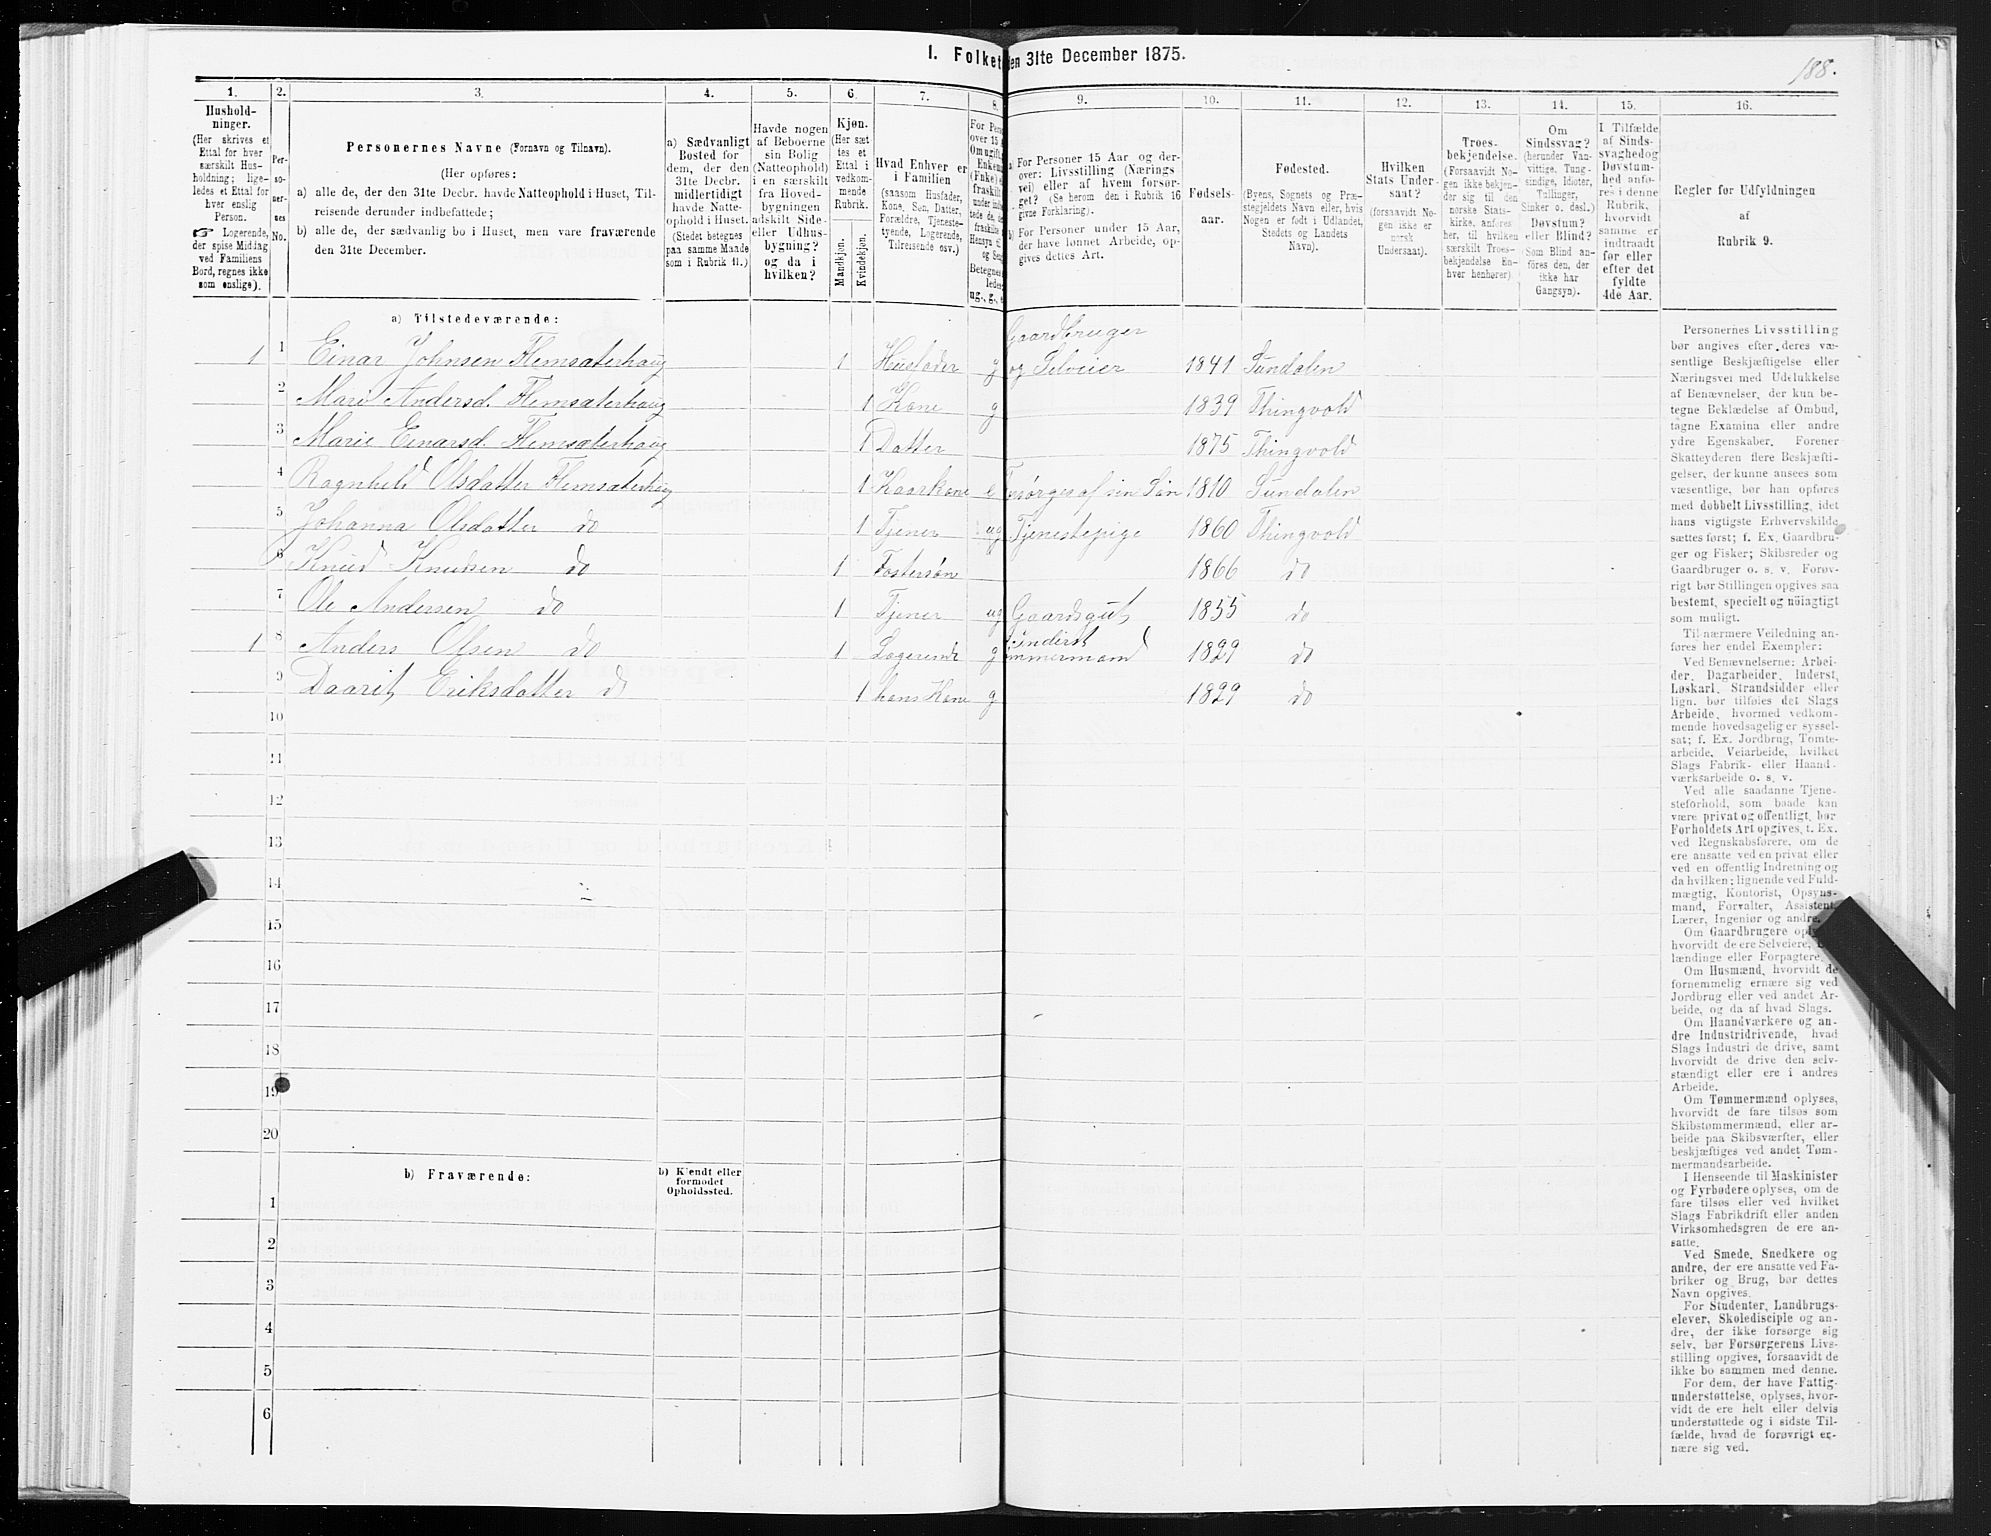 I. Folket en 31te December 1875.
188.
1. 2. 3. 4. 5. 6. 7. 8. 9. 10. 11. 12. 13. 14. 15. 16.
Hushold-
ninger.
(Her skrives et
Ettal for hver
særskilt Hus-
holdning; lige-
ledes et Ettal for
hver enslig
Person.
☞ Logerende,
der spise Middag
ved Familiens
Bord, regnes ikke
som enslige).
Per-
so-
ner-
nes
No.
Personernes Navne (Fornavn og Tilnavn).
(Her opføres:
a) alle de, der den 31te Decbr. havde Natteophold i Huset, Til-
reisende derunder indbefattede;
b) alle de, der sædvanlig bo i Huset, men vare fraværende
den 31te December.
a) Sædvanligt
Bosted for
dem, der den
31te Decbr.
midlertidigt
havde Natte-
ophold i Huset.
(Stedet betegnes
paa samme Maade
som i Rubrik 11.)
Havde nogen
af Beboerne
sin Bolig
(Natteophold)
i en særskilt
fra Hoved-
bygningen
adskilt Side-
eller Udhus-
bygning?
og da i
hvilken?
Kjøn.
(Her sæt
tes et
Ettal i
vedkom-
mende
Rubrik.
Mandkjøn.
Kvindekjøn.
Hvad Enhver er
i Familien
(saasom Husfader,
Kone, Søn, Datter,
Forældre, Tjeneste-
tyende, Logerende,
Tilreisende osv.)
For Pers
over 15
Om ugift,
Enkem
(Enke)
fraskilt
under
tede de,
fraskilte
Hensyn til
og Sen
Betegnes
ledes:
ug., g., e
a) For Personer 15 Aar og der-
over: Livsstilling (Nærings
vei) eller af hvem forsør-
get? (Se herom den i Rubrik 16
givne Forklaring).
b) For Personer under 15 Aar,
der have lønnet Arbeide, op-
gives dettes Art.
Fødsels-
aar.
Fødested.
(Byens, Sognets og Præ-
stegjeldets Navn eller, hvis
Nogen er født i Udlandet,
Stedets og Landets
Navn).
Hvilken
Stats Under-
saat?
(forsaavidt No-
gen ikke er
norsk
Undersaat).
Troes-
bekjendelse.
(Forsaavidt No-
gen ikke bekjen-
der sig til den
norske Stats-
kirke, anføres
her, til hvilken
særskilt Troes-
bekjendelse En-
hver henhører).
Om
Sindssvag?
(herunder Van-
vittige, Tung-
sindige, Idioter,
Tullinger,
Sinker o. desl.)
Døvstum?
eller Blind?
Som Blind an-
føres den, der
ikke har
Gangsyn).
I Tilfælde
af Sinds-
svaghed og
Døvstum-
hed anfø-
res i denne
Rubrik,
hvorvidt
samme er
indtraadt
før eller
efter det
fyldte
4de Aar.
Regler for Udfyldningen
af
Rubrik 9.
a) Tilstedeværende:
Gaardbruger
1 1 Einar Johnsen Flemsæterhaug 1 Husfader g og Selveier 1841 Sundalen
2 Mari Andersd. Flemsæterhaug 1 Kone g 1839 Thingvold
3 Marie Einarsd. Flemsæterhaug 1 Datter 1875 Thingvold
4 Ragnhild Olsdatter Flemsæterhaug 1 Kaarkone e Forsørges af sin Søn 1810 Sundalen
5 Johanna Olsdatter do 1 Tjener ug Tjenestepige 1860 Thingvold
6 Knud Knudsen do 1 Fostersøn 1866 do
7 Ole Andersen do 1 Tjener ug Gaardsgut 1855 do
Inderst
1 8 Anders Olsen do 1 Logerende g Tømmermand 1829 do
9 Daarit Eriksdatter do 1 hans Kone g 1829 do
10
11
12
13
14
15
16
17
18
19
20
b) Fraværende:
b) Kjendt eller
formodet
Opholdssted.
1
2
3
4
5
6
Personernes Livsstilling
bør angives efter deres væ-
sentlige Beskjæftigelse eller
Næringsvei med Udelukkelse
af Benævnelser, der kun be-
tegne Beklædelse af Ombud,
tagne Examina eller andre
ydre Egenskaber. Forener
Skatteyderen flere Beskjæfti-
gelser, der kunne ansees som
væsentlige, bør han opføres
med dobbelt Livsstilling, idet
hans vigtigste Erhvervskilde
sættes først; f. Ex. Gaardbru-
ger og Fisker; Skibsreder og
Gaardbruger o. s. v. Forøv-
rigt bør Stillingen opgives saa
bestemt, specielt og nöiagtigt
som muligt.
Til nærmere Veiledning an-
føres her endel Exempler:
Ved Benævnelserne: Arbei-
der, Dagarbeider, Inderst,
Løskarl, Strandsidder eller
lign. bør tilføies det Slags
Arbeide, hvormed vedkom-
mende hovedsagelig er syssel-
sat; f. Ex. Jordbrug, Tomte-
arbeide, Veiarbeide, hvilket
Slags Fabrik- eller Haand-
værksarbeide o. s. v.
Ved alle saadanne Tjene-
steforhold, som baade kan
være privat og offentligt, bør
Forholdets Art opgives, t. Ex.
ved Regnskabsførere, om de
ere ansatte ved en privat eller
ved en offentlig Indretning og
da hvilken; lignende ved Fuld-
mægtig, Kontorist, Opsyns-
mand, Forvalter, Assistent,
Lærer, Ingeniør og andre.
Om Gaardbrugere oply
hvorvidt de ere Selveiere,
lændinge eller Forpagtere.
Om Husmænd, hvorvidt de
fornemmelig ernære sig ved
Jordbrug eller ved andet Ar-
beide, og da af hvad Slags.
Om Haandværkere og an-
dre Industridrivende, hvad
Slags Industri de drive, samt
hvorvidt de drive den selv-
stændigt eller ere i andres
Arbeide.
Om Tømmermænd oplyses,
hvorvidt de fare tilsøs som
Skibstømmermænd, eller ar-
beide paa Skibsværfter, eller
beskjæftiges ved andet Tøm-
mermandsarbeide.
I Henseende til Maskinister
og Fyrbødere oplyses, om de
fare tilsøs eller ved hvilket
Slags Fabrikdrift eller anden
Virksomhedsgren de ere an-
satte.
Ved Smede, Snedkere og
andre, der ere ansatte ved Fa-
briker og Brug, bør dettes
Navn opgives.
For Studenter, Landbrugs-
elever, Skoledisciple og an-
dre, der ikke forsørge sig
selv, bør Forsørgerens Livs-
stilling opgives, forsaavidt de
ikke bo sammen med denne.
For dem, der have Fattig-
understøttelse, oplyses, hvor-
vidt de ere helt eller delvis
understøttede og i sidste Til-
fælde, hvad de forøvrigt er-
nære sig ved.